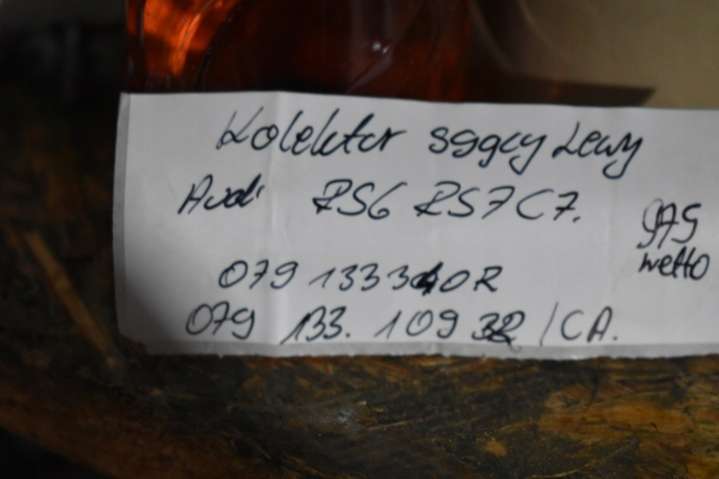 Kolektor ssący Lewy
Audi RS6 RS7 C7.
975
netto
079 133 340R
079 133. 109 /CA.